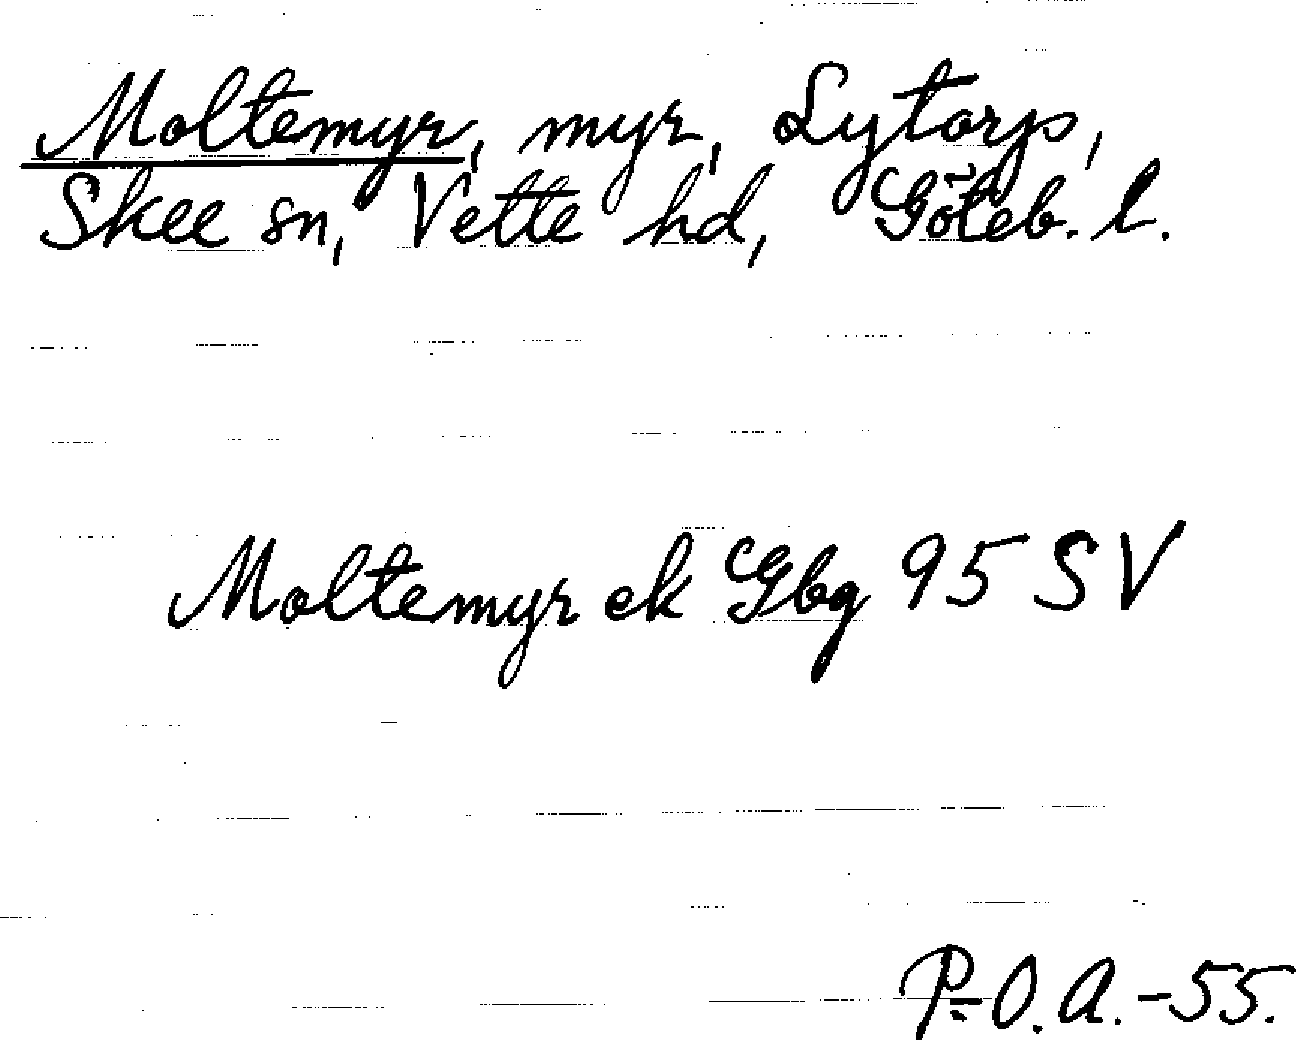 Moltemyr, myr, Lytorp,
Skee sn, Vette hd, Göteb. l.
Moltemyr ek Gbg 95 SV
P-O.A.-55.